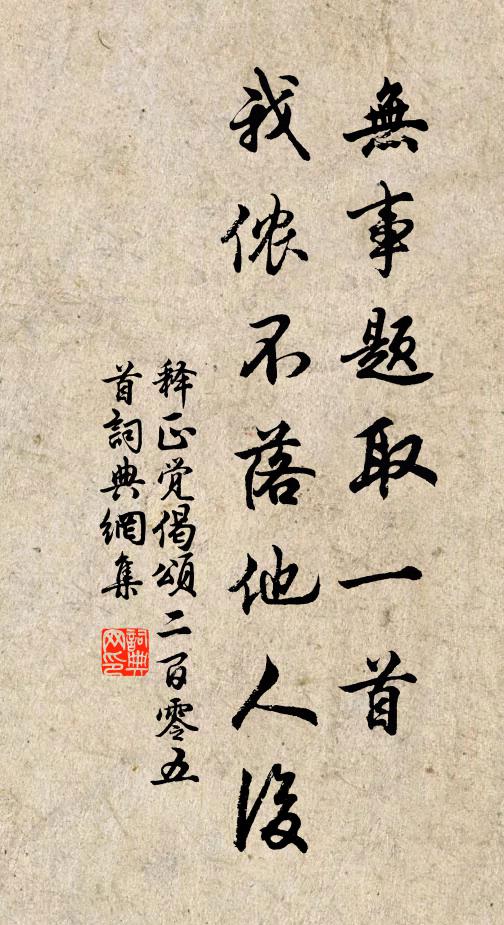 無事題取一首
我侬不落他人後
释正觉偈頌二百零五
首詞典網集
詞典网印